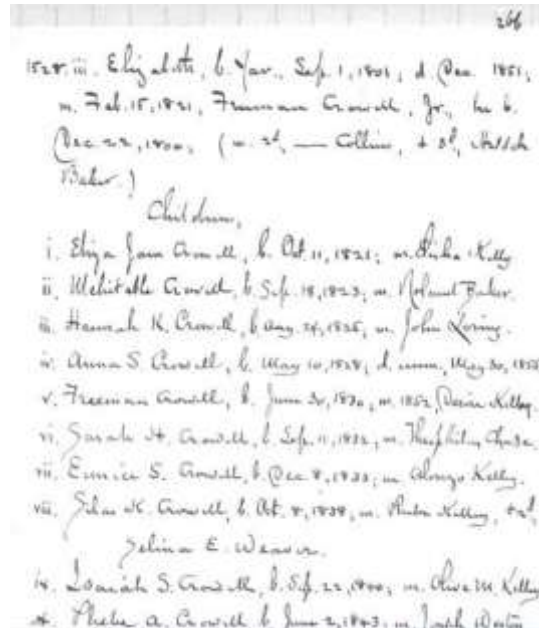 266
1528. iii. Elizabeth, b. Yar., Sep. 1, 1801; d. Dec. 1851;
m. Feb. 15, 1821, Freeman Crowell, Jr., he b.
Dec 22, 1800, (m. 2d, — Collins, + 3d,
Baker.)
Children,
i. Eliza Jane Crowell, b. Oct. 11, 1821; m. Kelly
ii. Mehitable Crowell, b. Sep. 18, 1823; m. Baker.
iii. Hannah K. Crowell, b. Aug. 24, 1825, m. John Loring.
iv. Anna S. Crowell, b. May 10, 1828; d. unm., May 30, 1855
v. Freeman Crowell, b. June 30, 1830, m. 1852, Kelley.
vi. Sarah H. Crowell, b. Sep. 11, 1832, m. Theophilus Chase.
vii. Eunice S. Crowell, b. Dec 8, 1833; m. Alonzo Kelly.
viii. Silas K. Crowell, b. Oct. 8, 1838, m. Kelley, + 2d,
Selina E. Weaver.
ix. Isaiah S. Crowell, b. Sep. 22, 1840; m. Olive M. Kelley
x. Phebe A. Crowell b. June 2, 1843; m. Joseph